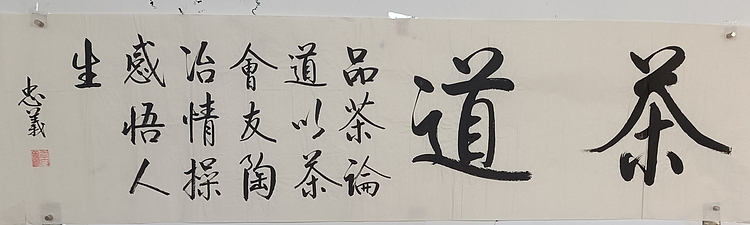 茶道
品茶論
道以茶
會友陶
冶情操
感悟人
生
忠義